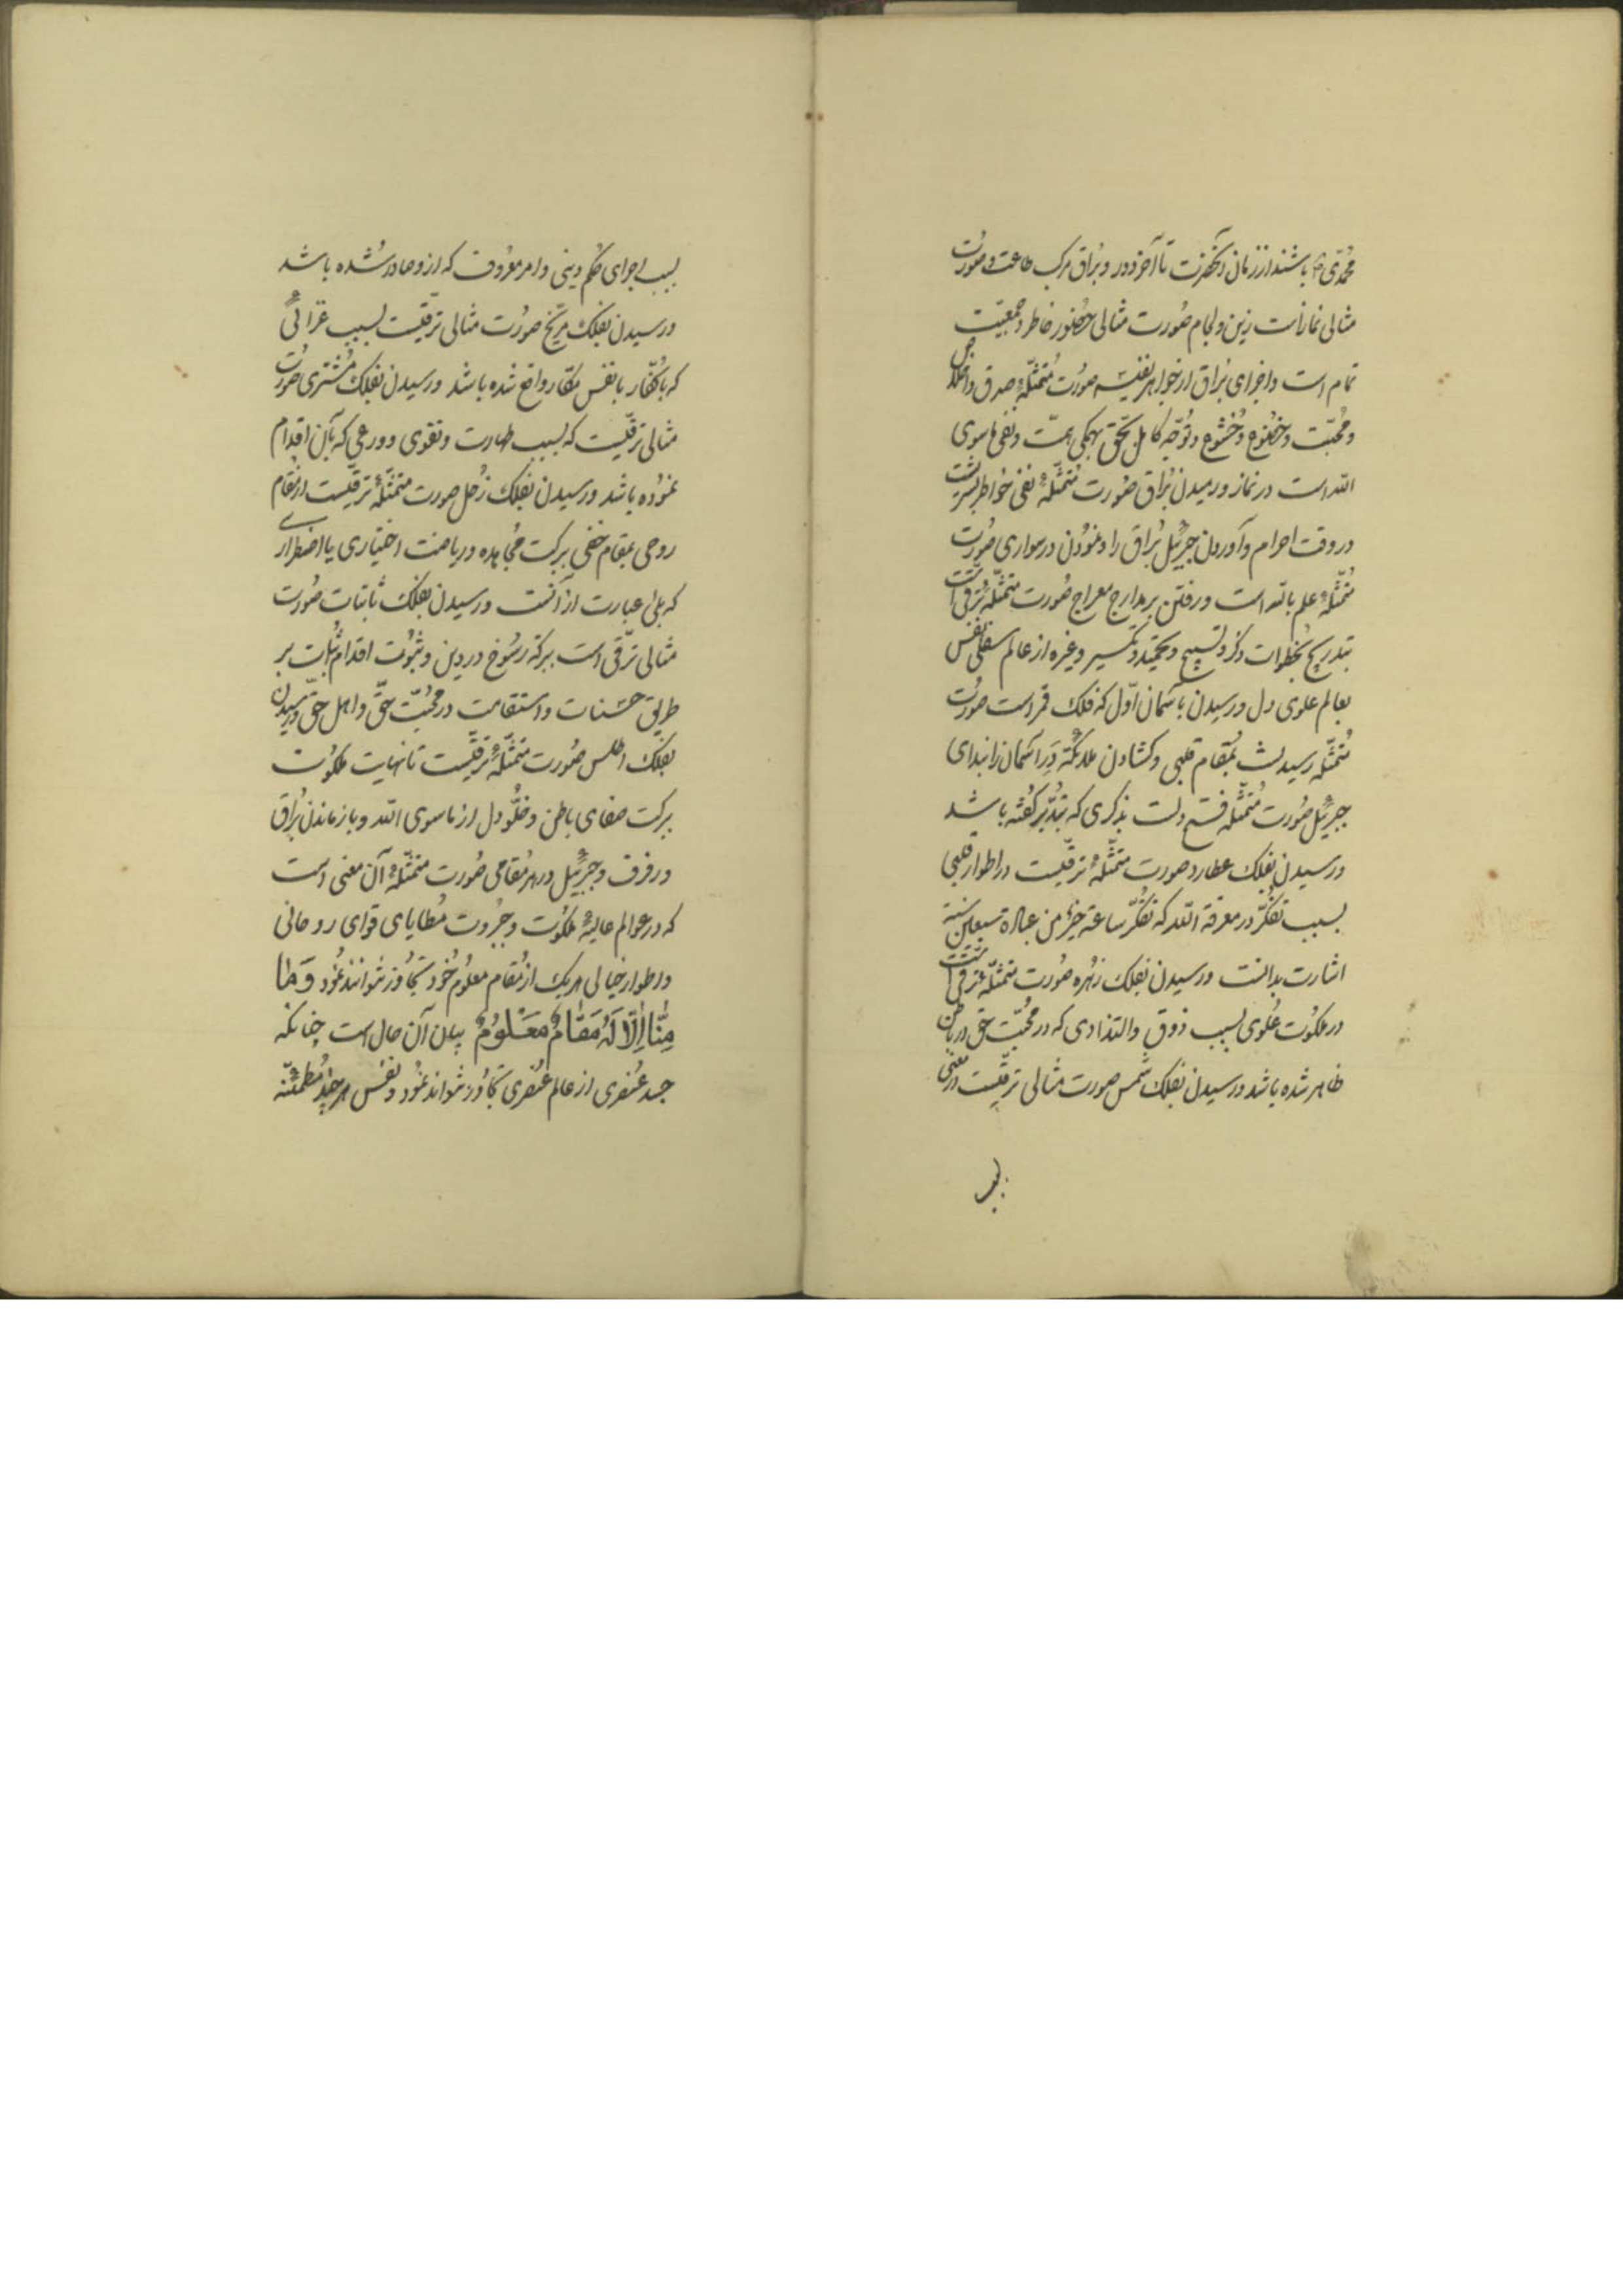 محمدی باشند از زمان آنحضرت تا آخر دور و براق مرکب طاعت و صورت
مثالی نماز است زین و لجام صورت مثالی حضور خاطر و جمعیت
تمام است و اجزای براق از جواهر نفیسه صورت متمثلهٔ صدق و اخلاص
و محبت و خضوع و خشوع و توجه کامل بحق بهمگی همت و نفی ماسوی
الله است در نماز و رمیدن براق صورت متمثلهٔ نفی خواطر بشریست
در وقت احرام و آوردن جبرئیل براق را و نمودن در سواری صورت
متمثلهٔ علم بالله است و رفتن بر مدارج معراج صورت متمثلهٔ ترقی است
بتدریج بخطوات ذکر و تسبیح و تحمید و تکبیر و غیره از عالم سفلی نفس
بعالم علوی دل و رسیدن بآسمان اول که فلک قمر است صورت
متمثله رسیدنست بمقام قلبی و گشادن ملائکه در آسمان را بندای
جبرئیل صورت متمثله فتح دلست بذکری که بتدبر گفته باشد
و رسیدن بفلک عطارد صورت متمثلهٔ ترقیست در اطوار قلبی
بسبب تفکر در معرفة الله که تفکر ساعة خیر من عبادة سبعین سنة
اشارت بدانست و رسیدن بفلک زهره صورت متمثله ترقی است
در ملکوت علوی بسبب ذوق و التذاذی که در محبت حق در باطن
ظاهر شده باشد و رسیدن بفلک شمس صورت مثالی ترقیست در معنی
بسبب
بسبب اجرای حکم دینی و امر معروف که ازو صادر شده باشد
و رسیدن بفلک مریخ صورت مثالی ترقیست بسبب غزائی
که با کفار یا نفس مکار واقع شده باشد و رسیدن بفلک مشتری صورت
مثالی ترقیست که بسبب طهارت و تقوی و ورعی که بآن اقدام
نموده باشد و رسیدن بفلک زحل صورت متمثلهٔ ترقیست از مقام
روحی بمقام خفی ببرکت مجاهده و ریاضت اختیاری یا اضطراری
که بلی عبارت از آنست و رسیدن بفلک ثابتات صورت
مثالی ترقی است ببرکة رسوخ در دین و ثبوت اقدام ثبات بر
طریق حسنات و استقامت در محبت حق و اهل حق و رسیدن
بفلک اطلس صورت متمثلهٔ ترقیست تا نهایت ملکوت
ببرکت صفای باطن و خلو دل از ماسوی الله و باز ماندن براق
و رفرف و جبرئیل در هر مقامی صورت متمثلهٔ آن معنی است
که در عوالم عالیهٔ ملکوت و جبروت مطایای قوای روحانی
و اطوار خیالی هر یک از مقام معلوم خود تجاوز نتوانند نمود وَمَا
مِنَّا إِلَّا لَهُ مَقَامٌ مَعْلُومٌ بیان آن حال است چنانکه
جسد عنصری از عالم عنصری تجاوز نتواند نمود و نفس هر چند مطمئنه